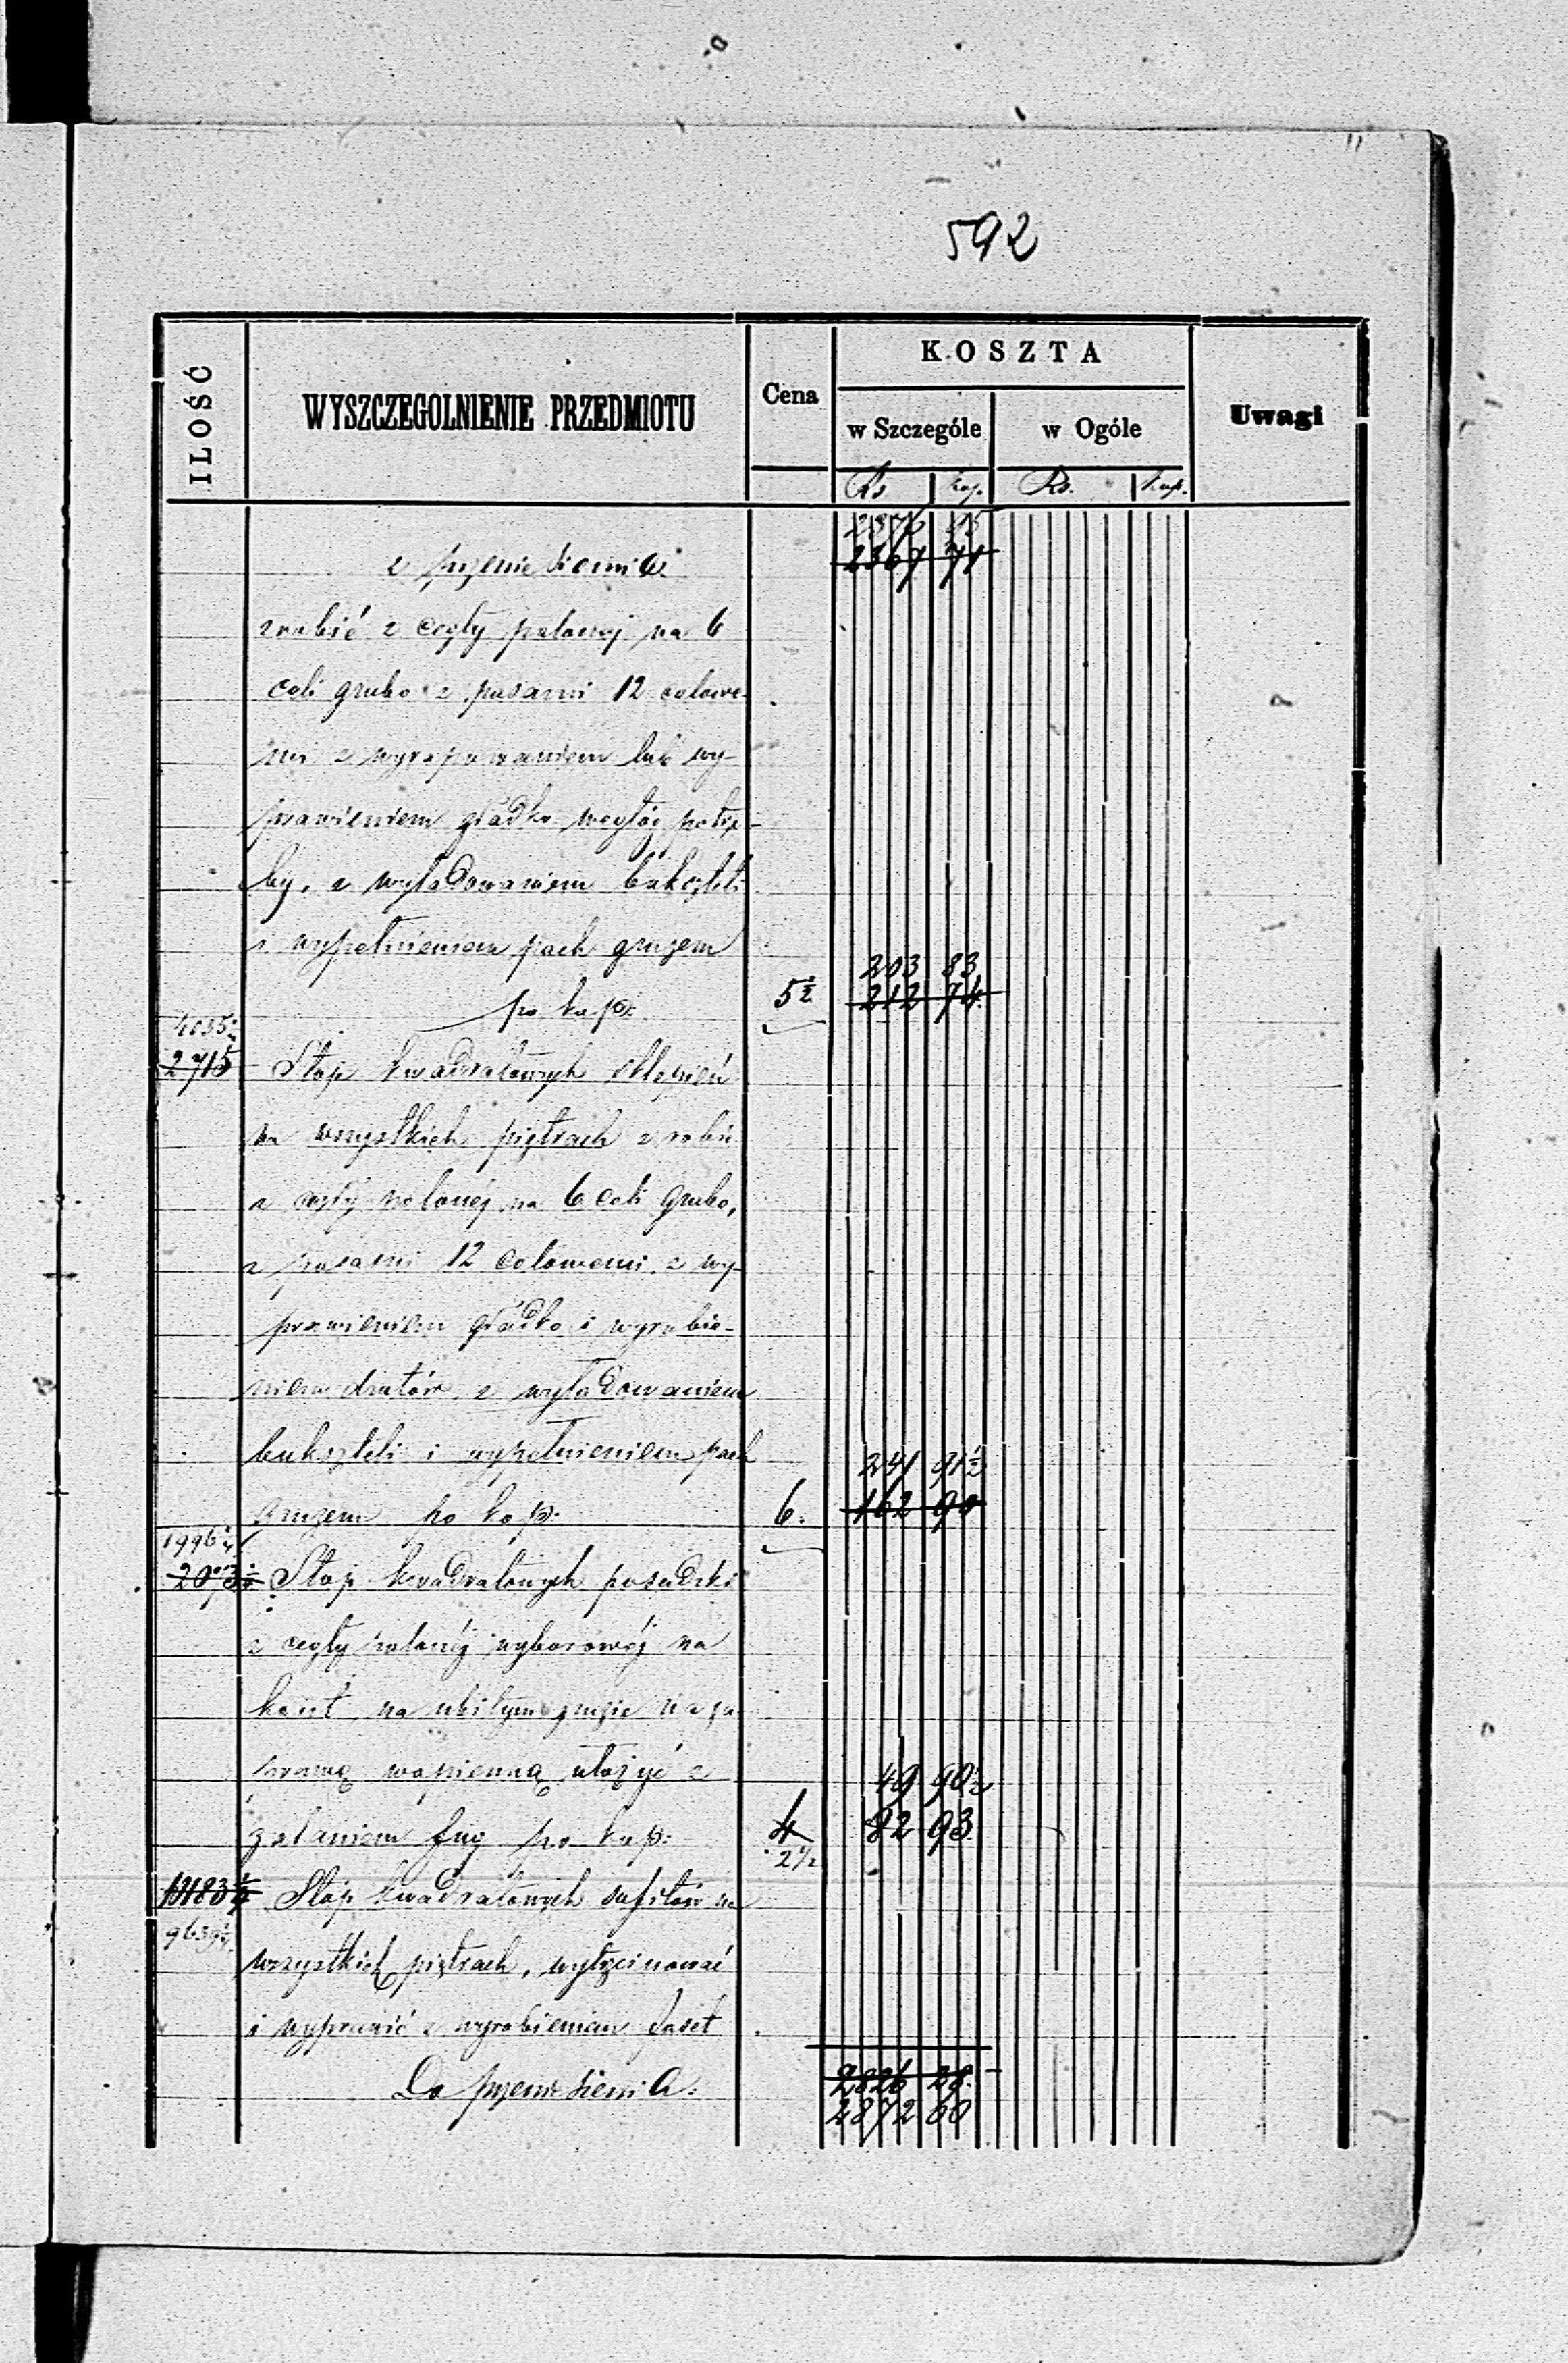 592
ILOŚĆ
WYSZCZEGOLNIENIE PRZEDMIOTU
Cena
KOSZTA
w Szczególe
w Ogóle
Uwagi
Rs kop. Rs. kop.
2376 15
z przeniesienia 2367 71
zrobić z cegły palonej na 6
cali grubo z pasami 12 calowe-
mi z wyrapowaniem lub wy-
prawieniem gładko, według potrze-
by, z wyładowaniem bukszteli
i wypełnieniem pach gruzem
203 83
po kop: 5½ 212 74
4035
2715 Stóp kwadratowych sklepień
na wszystkich piętrach zrobić
z cegły palonej na 6 cali grubo,
z pasami 12 calowemi, z wy-
prawieniem gładko i wyrobie-
niem drutów, z wyładowaniem
bukszteli i wypełnieniem pach
241 91½
gruzem po kop: 6. 162 90
1996¼
2073 Stóp kwadratowych posadzki
z cegły palonéj wyborowéj na
kant, na ubitym gruzie na za
prawę wapienną ułożyć z
49 90½
zalaniem fug po kop: 4 82 93
2½
13183¼ Stóp kwadratowych sufitów na
9639¼
wszystkich piętrach, wytrzcinować
i wyprawić z wyrobieniem faset
Do przeniesienia: 2826 28.
2872 00